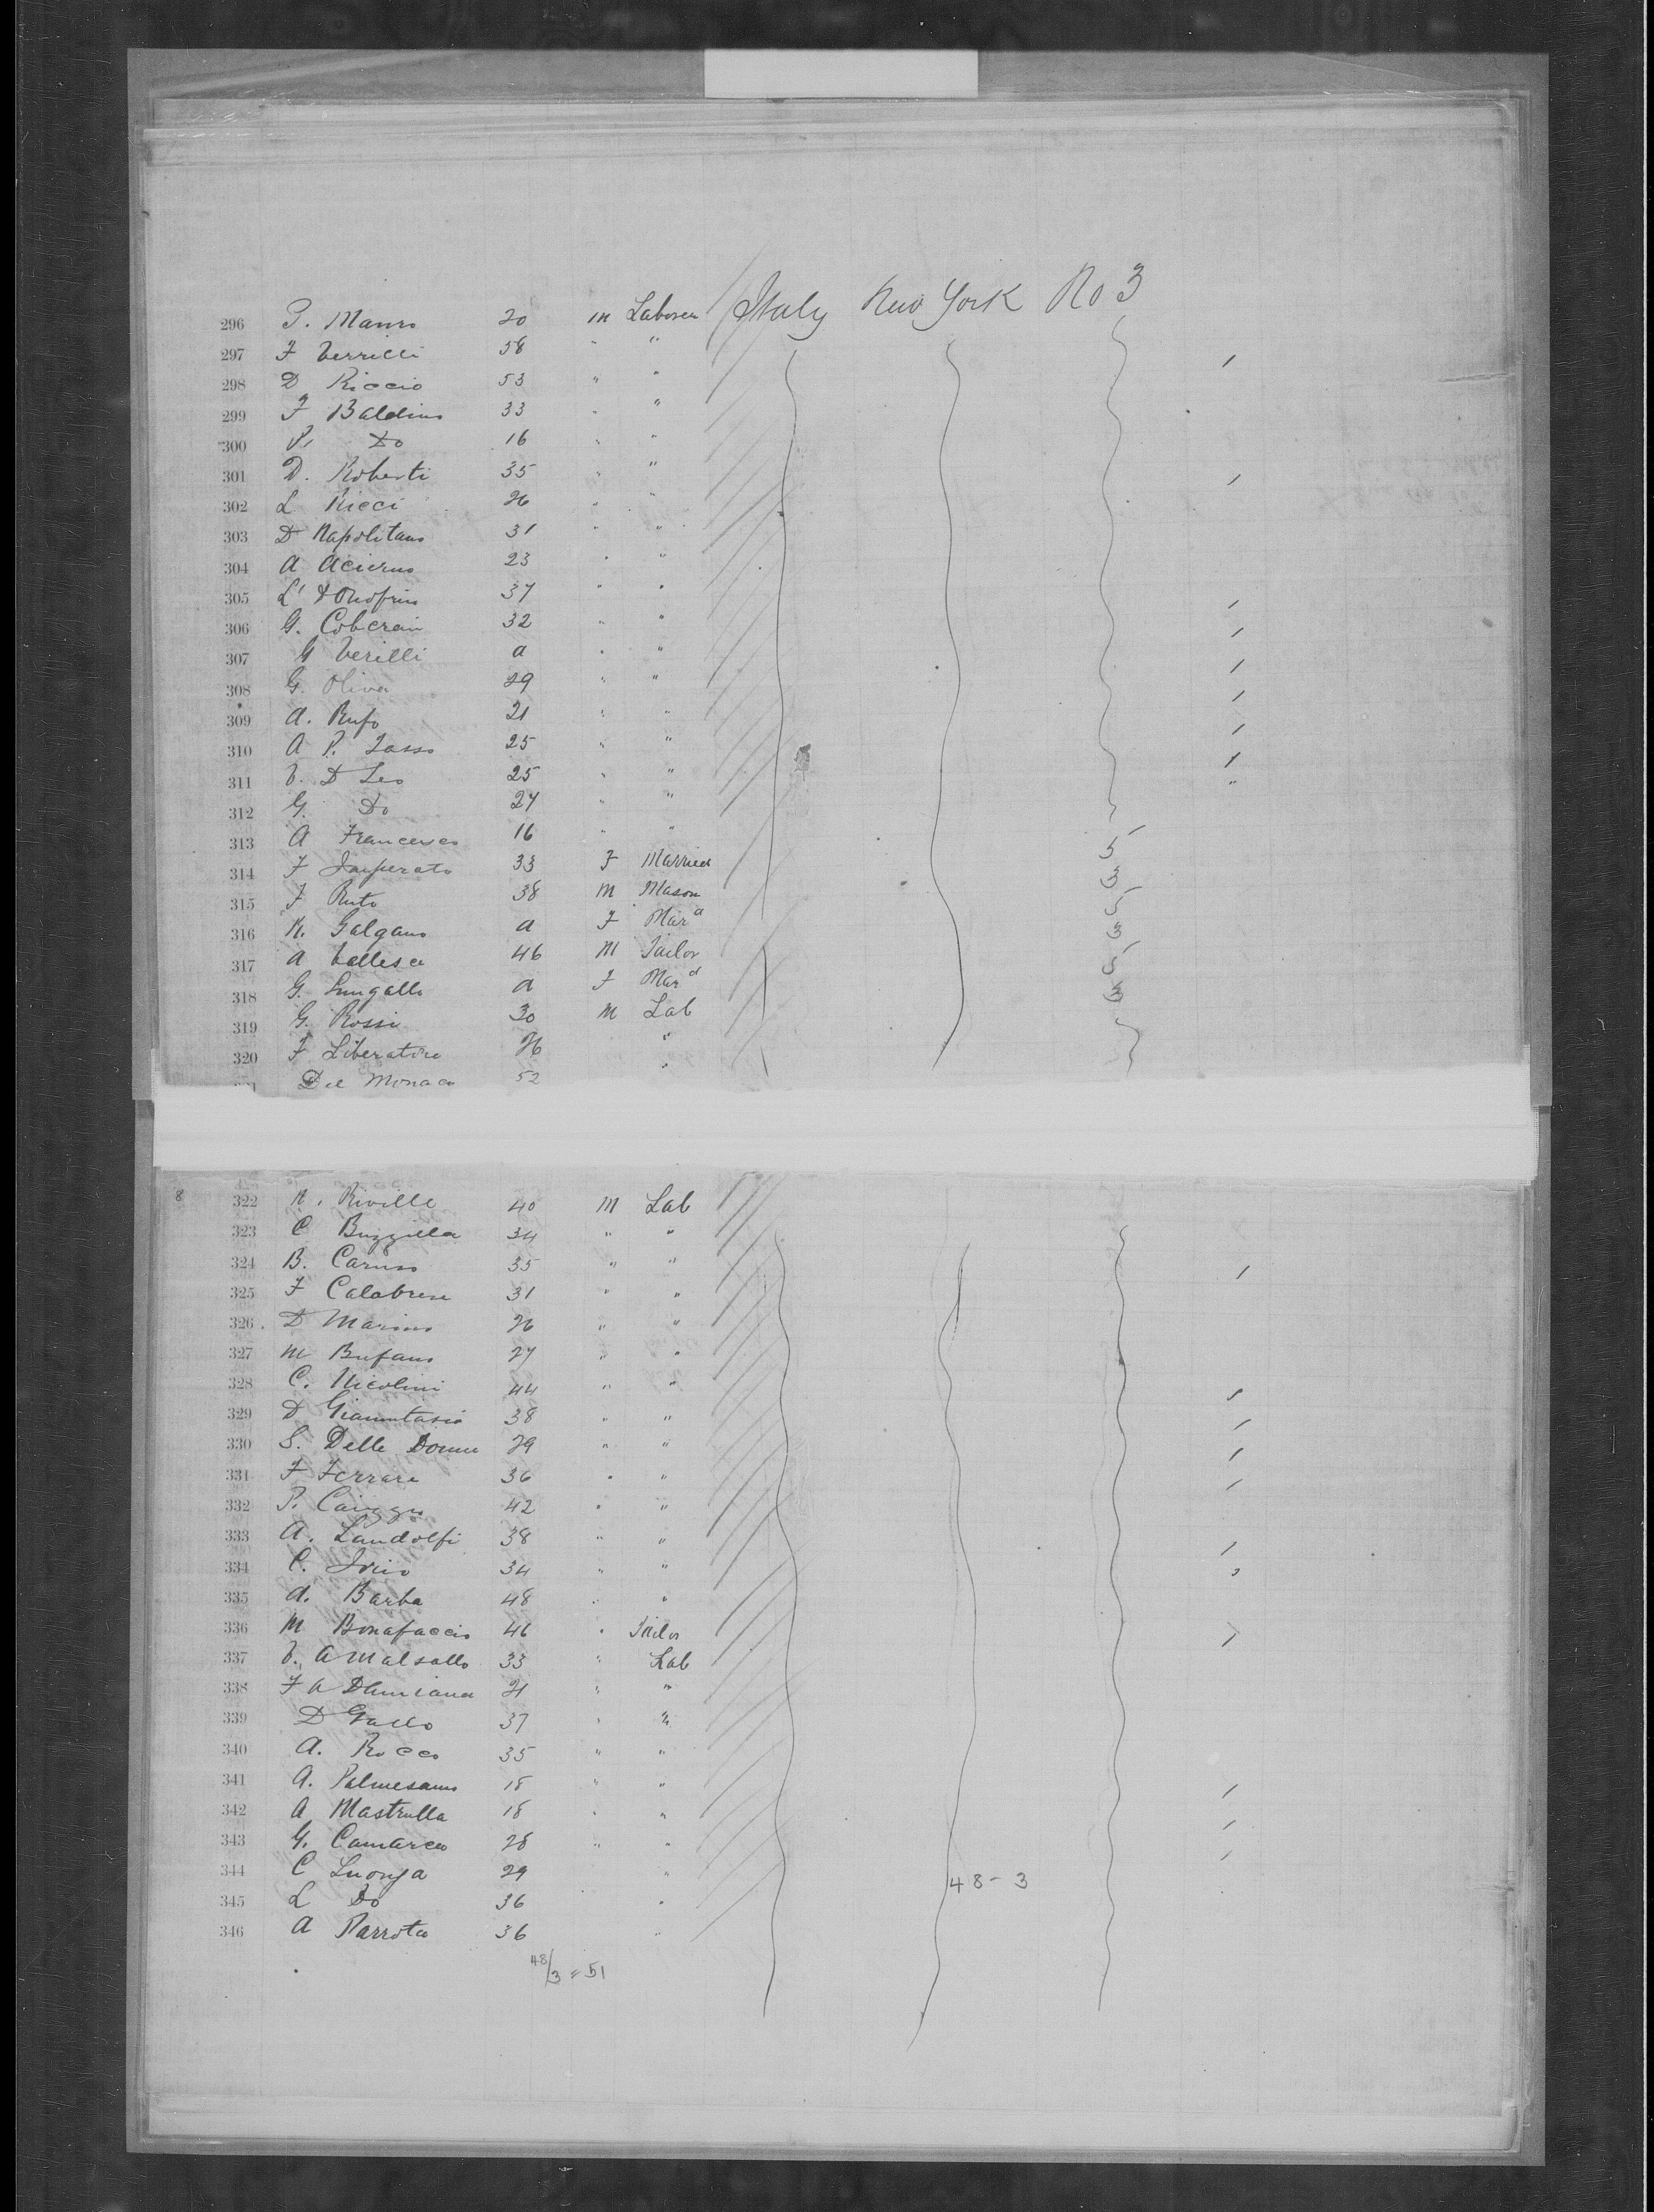 296 P. Mauro 20 m Laborer Italy New York No 3
297 F Verrilli 58 " "
298 D Riccio 53 " "
299 F Baldino 33 " "
300 P. Do 16 " "
301 D. Roberti 35 " "
302 L Ricci 26 " "
303 D Napolitano 31 " "
304 A Acierno 23 " "
305 L' D'Onofrio 37 " "
306 G. 32 " "
307 G Verilli a " "
308 G. Oliva 29 " "
309 A. Rufo 21 " "
310 A P. 25 " "
311 V. D Leo 25 " " "
312 G. Do 27 " "
313 A Francesco 16 " " 5
314 F Imperato 33 F Married 3
315 F Ruto 38 M Mason 5
316 N. Galgano a F Mar d 3
317 A Vellesca 46 M Tailor 5
318 G. Lungallo a F Mar d 3
319 G. Rossi 30 M Lab
320 F Liberatore 26 "
Del Monaco 52 "
8 322 N. Riville 40 M Lab
323 C Buzzilla 34 " "
324 B. Caruso 35 " "
325 F Calabrese 31 " "
326 D Marino 26 " "
327 M Bufano 27 " "
328 C. Nicolini 44 " "
329 D Gianntasio 38 " "
330 S. Delle Donne 29 " "
331 F Ferrara 36 " "
332 P. 42 " "
333 A. Landolfi 38 " "
334 C. Iorio 34 " "
335 A. Barba 48 " "
336 M Bonafaccio 46 " Tailor
337 V. A Malsallo 33 " Lab
338 F A Damiana 21 " "
339 D Gallo 37 " "
340 A. Rocco 35 " "
341 A. Palmesano 18 " "
342 A Mastrulla 18 " "
343 G. Camarco 28 " "
344 C Luongo 29 " 48-3
345 L Do 36 "
346 A Parrota 36 "
48/3 = 51